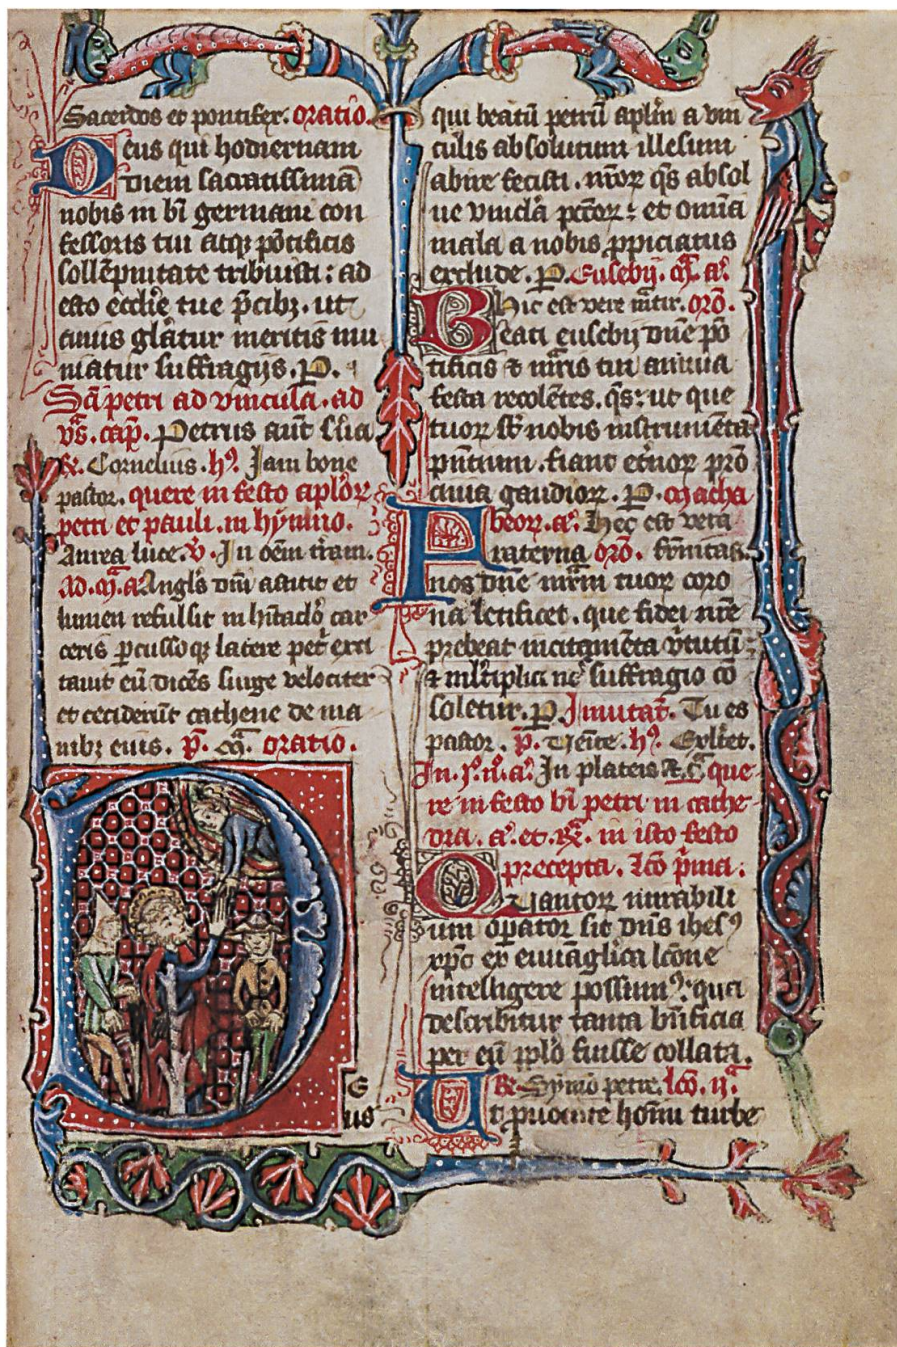 Sacerdos et pontifex. oratio.
Deus qui hodiernam
diem sacratissimā
nobis in bī germani con
fessoris tui atqꝫ pōtificis
sollēpnitate tribuisti : ad
esto ecclīe tue p̄cibꝫ . ut
cuius glātur meritis mu
niatur suffragijs . P.
Sā petri ad vincula . ad
vs̄. cap̄. Petrus aūt
R̄. Cornelius . hꝰ. Iam bone
pastor . quere in festo aplōꝝ
petri et pauli . in hỹmno .
Aurea luce . V. In oēm tr̄am .
Ad . Angls̄ dn̄i astitit et
lumen refulsit in hītaclo car
ceris ꝑcussoqꝫ latere petri exci
tauit eū dicēs surge velociter
et ceciderūt cathene de ma
nibꝫ eius . p̄. oratio .
D
E
us
qui beatū petrū aplm̄ a vin
culis absolutum illesum
abire fecisti . nr̄oꝝ qs̄ absol
ue vincla pcc̄oꝝ : et omīa
mala a nobis ꝓpiciatus
exclude . P. Eusebij .
Hic est vere mr̄tir . orō .
Beati eusebij dn̄e pō
tificis et mr̄is tui annua
festa recolētes . qs̄ : ut que
tuoꝝ st̄ nobis instrumēta
pn̄tium . fiant etn̄oꝝ
gaudioꝝ . P. Macha
beoꝝ . aͣ. Hec est vera
Fraterna orō . frn̄itas
nos dn̄e mr̄m tuoꝝ coro
na letificet . que fidei nr̄e
prebeat incitamēta v̄tutū :
et ml̄tiplici nos suffragio cō
soletur . P Inuitat̄. Tu es
pastor . p̄. Venite . hꝰ. Exultet .
In . In plateis . que
re in festo bī petri in cathe
dra . aͣ. et R̄. in isto festo
precepta . lcō prima .
Quantoꝝ mirabili
um oꝑator sit dn̄s ihesꝰ
xp̄c ex euuāglica lcōne
intelligere possumꝰ : quia
describitur tanta bn̄ficia
per eū pplo fuisse collata .
R̄ Symō petre . lcō . ijͣ.
Ut homīu turbe